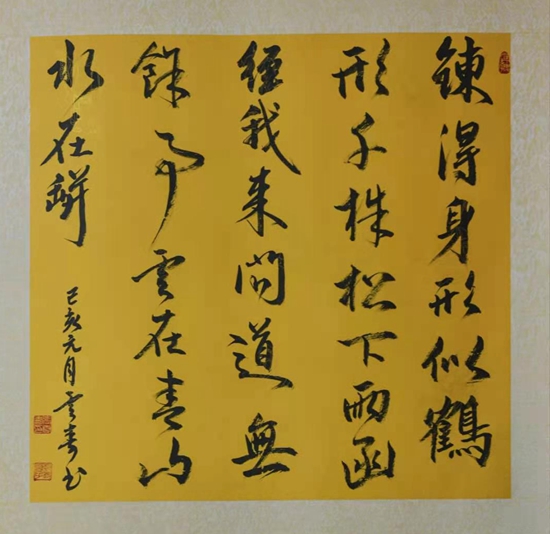 鍊得身形似鶴
形千株松下兩函
經我來問道無
餘事云在青山
水在缾
己亥元月云书